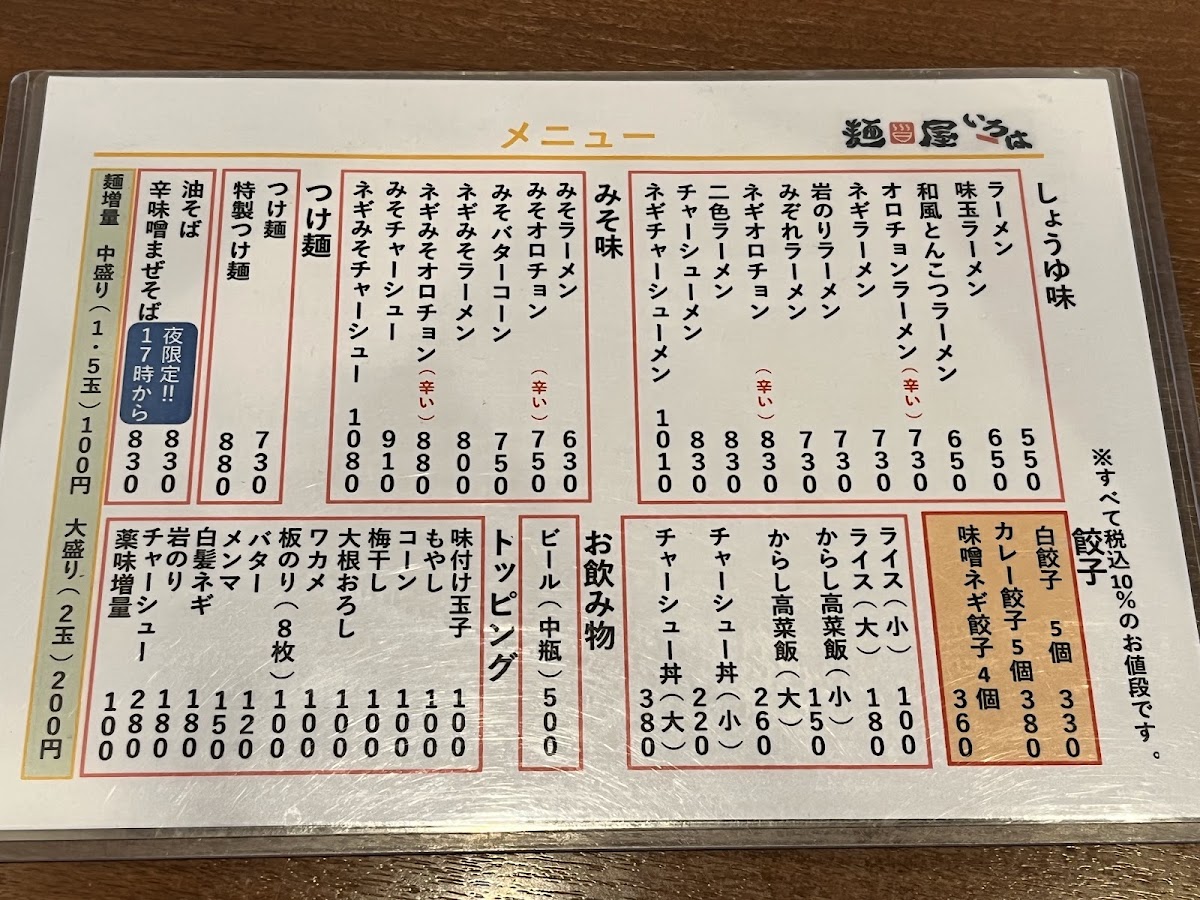 メニュー
麺屋いろは
※すべて税込10%のお値段です。
しょうゆ味
ラーメン 550
味玉ラーメン 650
和風とんこつラーメン 650
オロチョンラーメン（辛い）730
ネギラーメン 730
岩のりラーメン 730
みぞれラーメン 730
ネギオロチョン（辛い）830
二色ラーメン 830
チャーシューメン 830
ネギチャーシューメン 1010
みそ味
みそラーメン 630
みそオロチョン（辛い）750
みそバターコーン 750
ネギみそラーメン 800
ネギみそオロチョン（辛い）880
みそチャーシュー 910
ネギみそチャーシュー 1080
つけ麺
つけ麺 730
特製つけ麺 880
油そば 830
辛味噌まぜそば 830
夜限定!!
17時から
麺増量 中盛り（1・5玉）100円 大盛り（2玉）200円
餃子
白餃子 5個 330
カレー餃子5個 380
味噌ネギ餃子4個 360
ライス（小）100
ライス（大）180
からし高菜飯（小）150
からし高菜飯（大）260
チャーシュー丼（小）220
チャーシュー丼（大）380
お飲み物
ビール（中瓶）500
トッピング
味付け玉子 100
もやし 100
コーン 100
梅干し 100
大根おろし 100
ワカメ 100
板のり（8枚）100
バター 120
メンマ 150
白髪ネギ 180
岩のり 180
チャーシュー 280
薬味増量 100